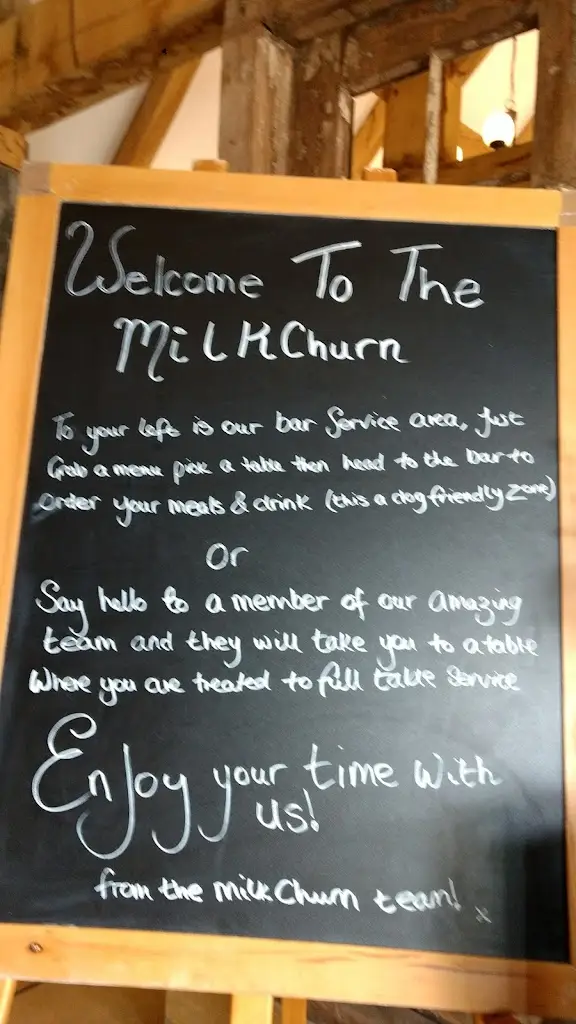 Welcome To The
MilkChurn
To your left is our bar Service area, Just
Grab a menu pick a table then head to the bar to
order your meals & drink (this a dog friendly zone)
Or
Say hello to a member of our amazing
team and they will take you to a table
Where you are treated to full table Service
Enjoy your time with
us!
from the milkChurn team! x